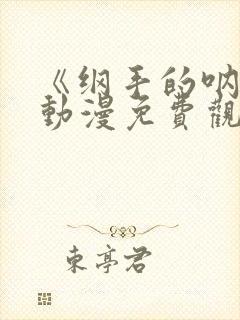 《纲手的呐
動漫免費觀
東亭君